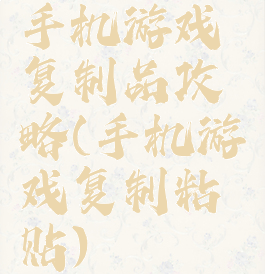 手机游戏
复制品攻
略(手机游
戏复制粘
贴)